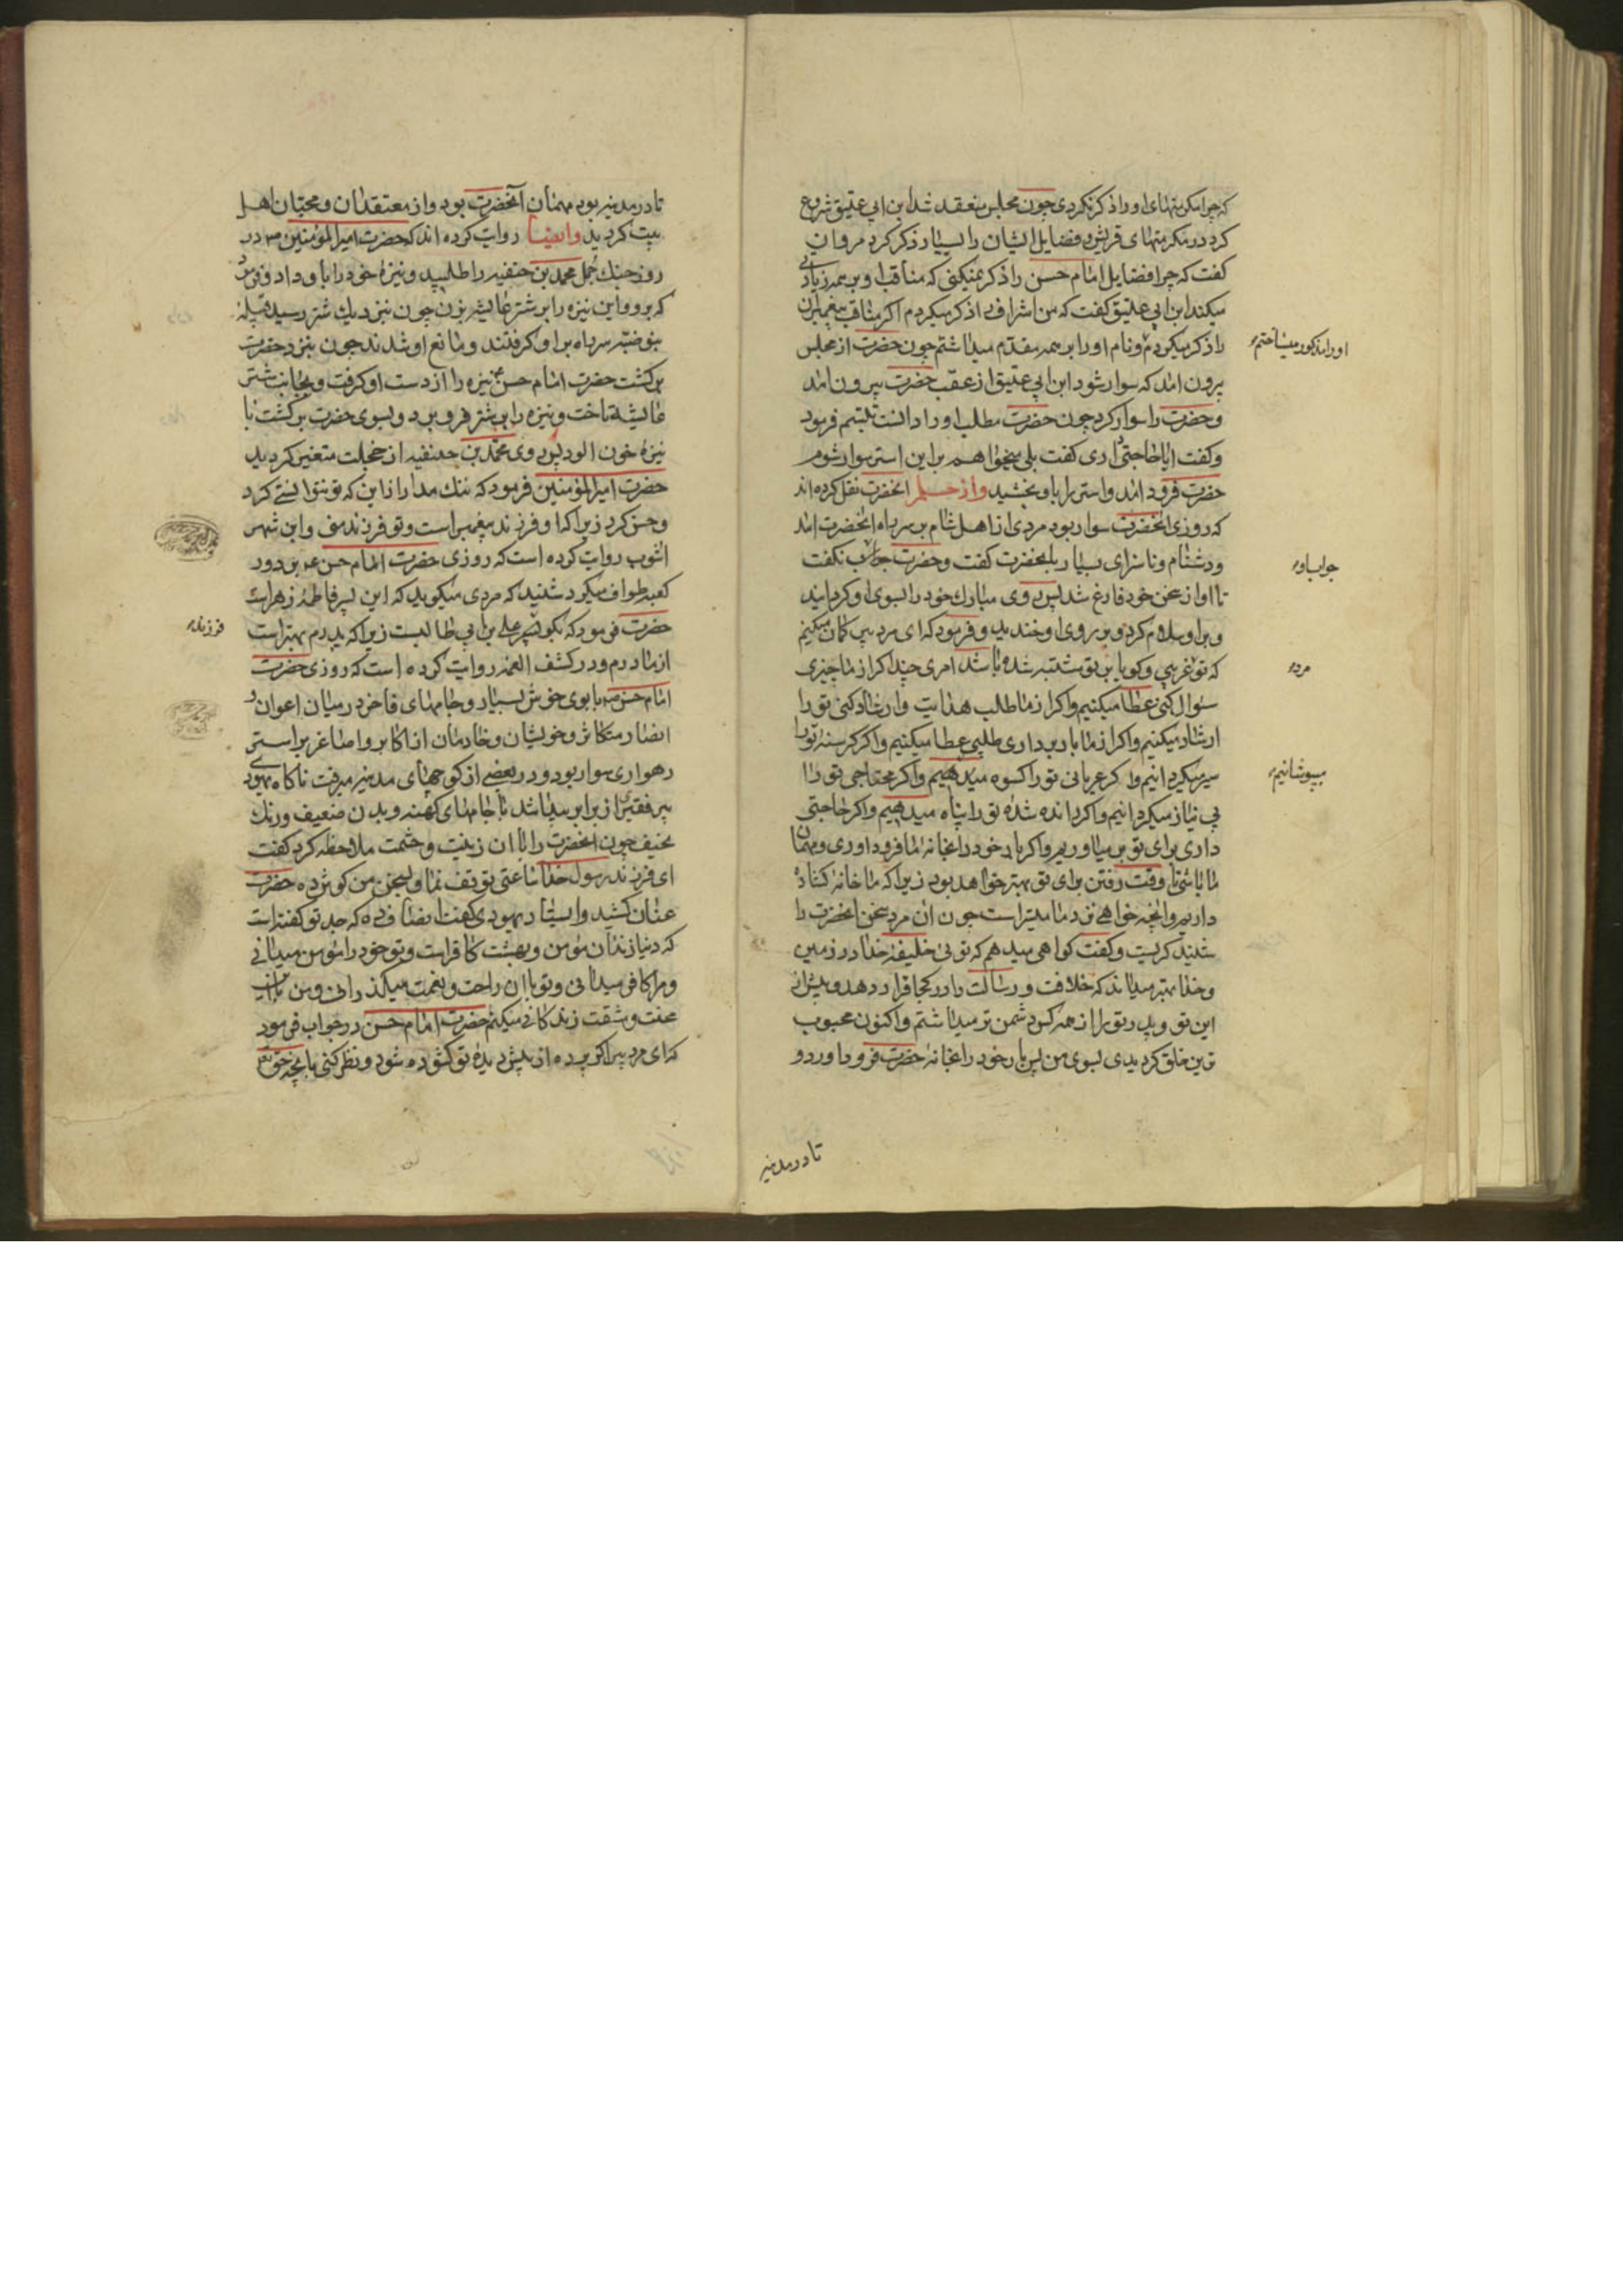 که چرا مکرمتهای او را ذکر نکردی چون مجلس منعقد شد ابن ابی عتیق شروع
کرد در مکرمتهای قریش و فضایل ایشان را بسیار ذکر کرد مروان
کفت که چرا فضایل امام حسن را ذکر نمیکنی که مناقب او بر همه زیادتی
میکند ابن ابی عتیق کفت که من اشراف را ذکر میکردم اکر مناقب پیغمبران
را ذکر میکردم و نام او را بر همه مقدم میداشتم چون حضرت از مجلس
او را مذکور میساختم
بیرون امد که سوار شود ابن ابی عتیق از عقب حضرت بیرون امد
و حضرت را سوار کرد چون حضرت مطلب او را دانست تبسّم فرمود
و کفت ایا حاجتی داری کفت بلی میخواهم بر این استر سوار شوم
حضرت فرود امد و استر را باو بخشید و از حلم انحضرت نقل کرده اند
که روزی انحضرت سوار بود مردی از اهل شام بر سر راه انحضرت امد
و دشنام و ناسزای بسیار بانحضرت کفت و حضرت جواب نکفت
جواب او
تا او از سخن خود فارغ شد پس روی مبارک خود را بسوی او کردانید
و بر او سلام کرد و بر روی او خندید و فرمود که ای مرد پیر کمان میکنم
که تو غریبی و کویا بر تو مشتبه شده باشد امری چند اکر از ما چیزی
مرد
سئوال کنی عطا میکنیم و اکر از ما طلب هدایت و ارشاد کنی تو را
ارشاد میکنیم و اکر از ما باربرداری طلبی عطا میکنیم و اکر کرسنه تو را
سیر میکردانیم و اکر عریانی تو را کسوه میدهیم و اکر محتاجی تو را
بپوشانیم
بی نیاز میکردانیم و اکر رانده شده تو را پناه میدهیم و اکر حاجتی
داری برای تو بر میاوریم و اکر بار خود را بخانه ما فرود اوری و مهمان
ما باشی تا وقت رفتن برای تو بهتر خواهد بود زیرا که ما خانه کشاده
داریم و انچه خواهی نزد ما میسّر است چون ان مرد سخن انحضرت را
شنید کریست و کفت کواهی میدهم که توئی خلیفه خدا در زمین
و خدا بهتر میداند که خلافت و رسالت را در کجا قرار دهد و پیش از
این تو و پدر تو را از همه کس دشمن تر میداشتم و اکنون محبوب
ترین خلق کردیدی بسوی من پس بار خود را بخانه حضرت فرود اورد و
تا در مدینه
تا در مدینه بود مهمان آنحضرت بود و از معتقدان و محبّان اهل
بیت کردید وایضا روایت کرده اند که حضرت امیرالمؤمنین در
روز جنک جمل محمد بن حنفیه را طلبید و نیزه خود را باو داد و فرمود
که برو و این نیزه را بر شتر عایشه بزن چون نزدیک شتر رسید قبیله
بنو ضبّه سر راه بر او کرفتند و مانع او شدند چون بنزد حضرت
برکشت حضرت امام حسن نیزه را از دست او کرفت و بجانب شتر
عایشه تاخت و نیزه را بر شتر فرو برد و بسوی حضرت برکشت با
نیزه خون الود پس روی محمّد بن حنفیه از خجلت متغیر کردید
حضرت امیرالمؤمنین فرمود که ننک مدار از این که تو نتوانستی کرد
و حسن کرد زیرا که او فرزند پیغمبر است و تو فرزند منی و ابن شهر
اشوب روایت کرده است که روزی حضرت امام حسن بر دور
کعبه طواف میکرد شنید که مردی میکوید که این پسر فاطمهٔ زهراست
حضرت فرمود که بکو پسر علی بن ابی طالبست زیرا که پدرم بهتر است
فرزند
از مادرم و در کشف الغمه روایت کرده است که روزی حضرت
امام حسن با بوی خوش بسیار و جامهای فاخر در میان اعوان و
انصار متکاثر و خویشان و خادمان از اکابر و اصاغر بر استر
رهواری سوار بود و در بعضی از کوچهای مدینه میرفت ناکاه یهودی
پیر فقیری از برابر پیدا شد با جامهای کهنه و بدن ضعیف و رنک
نحیف چون انحضرت را با ان زینت و حشمت ملاحظه کرد کفت
ای فرزند رسول خدا ساعتی توقف نما و بسخن من کوش ده حضرت
عنان کشید و ایستاد یهودی کفت انصاف ده که جد تو کفته است
که دنیا زندان مؤمن و بهشت کافر است و تو خود را مؤمن میدانی
و مرا کافر میدانی و تو با ان راحت و نعمت میکذرانی و من باین
محنت و مشقت زندکانی میکنم حضرت امام حسن در جواب فرمود
که ای مرد پیر اکر پرده از پیش دیده تو کشوده شود و نظر کنی بانچه حق